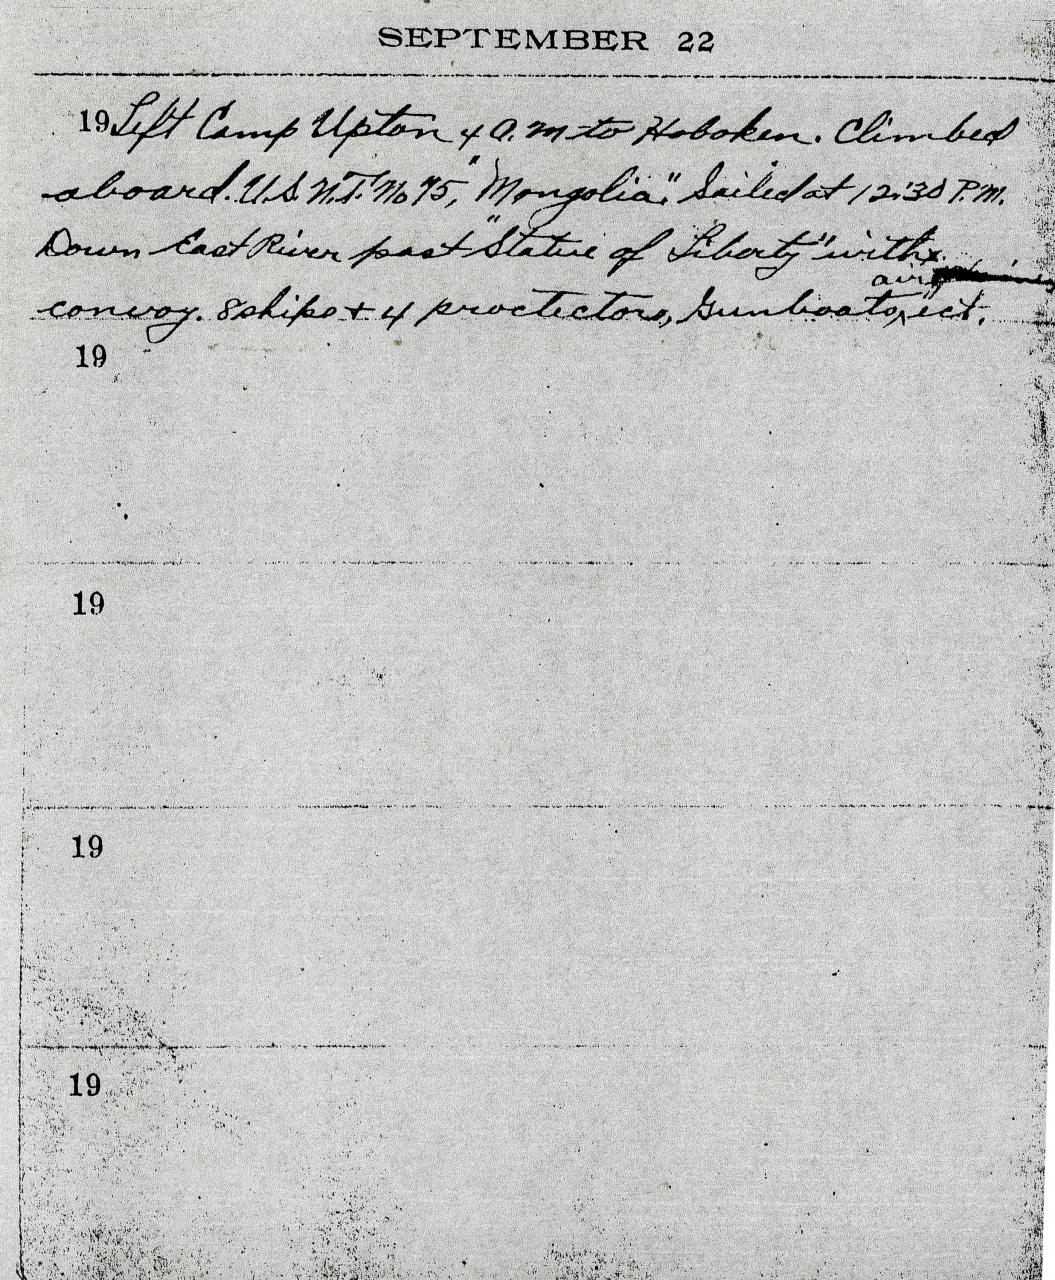 SEPTEMBER 22
19 Left Camp Upton 4 A.M to Hoboken. Climbed
aboard. U.S.N.T. No 75, "Mongolia." Sailed at 12:30 P.M.
Down East River past "Statue of Liberty" with
air
convoy. 8 ships + 4 proctectors, Gunboats, ect.
19
19
19
19